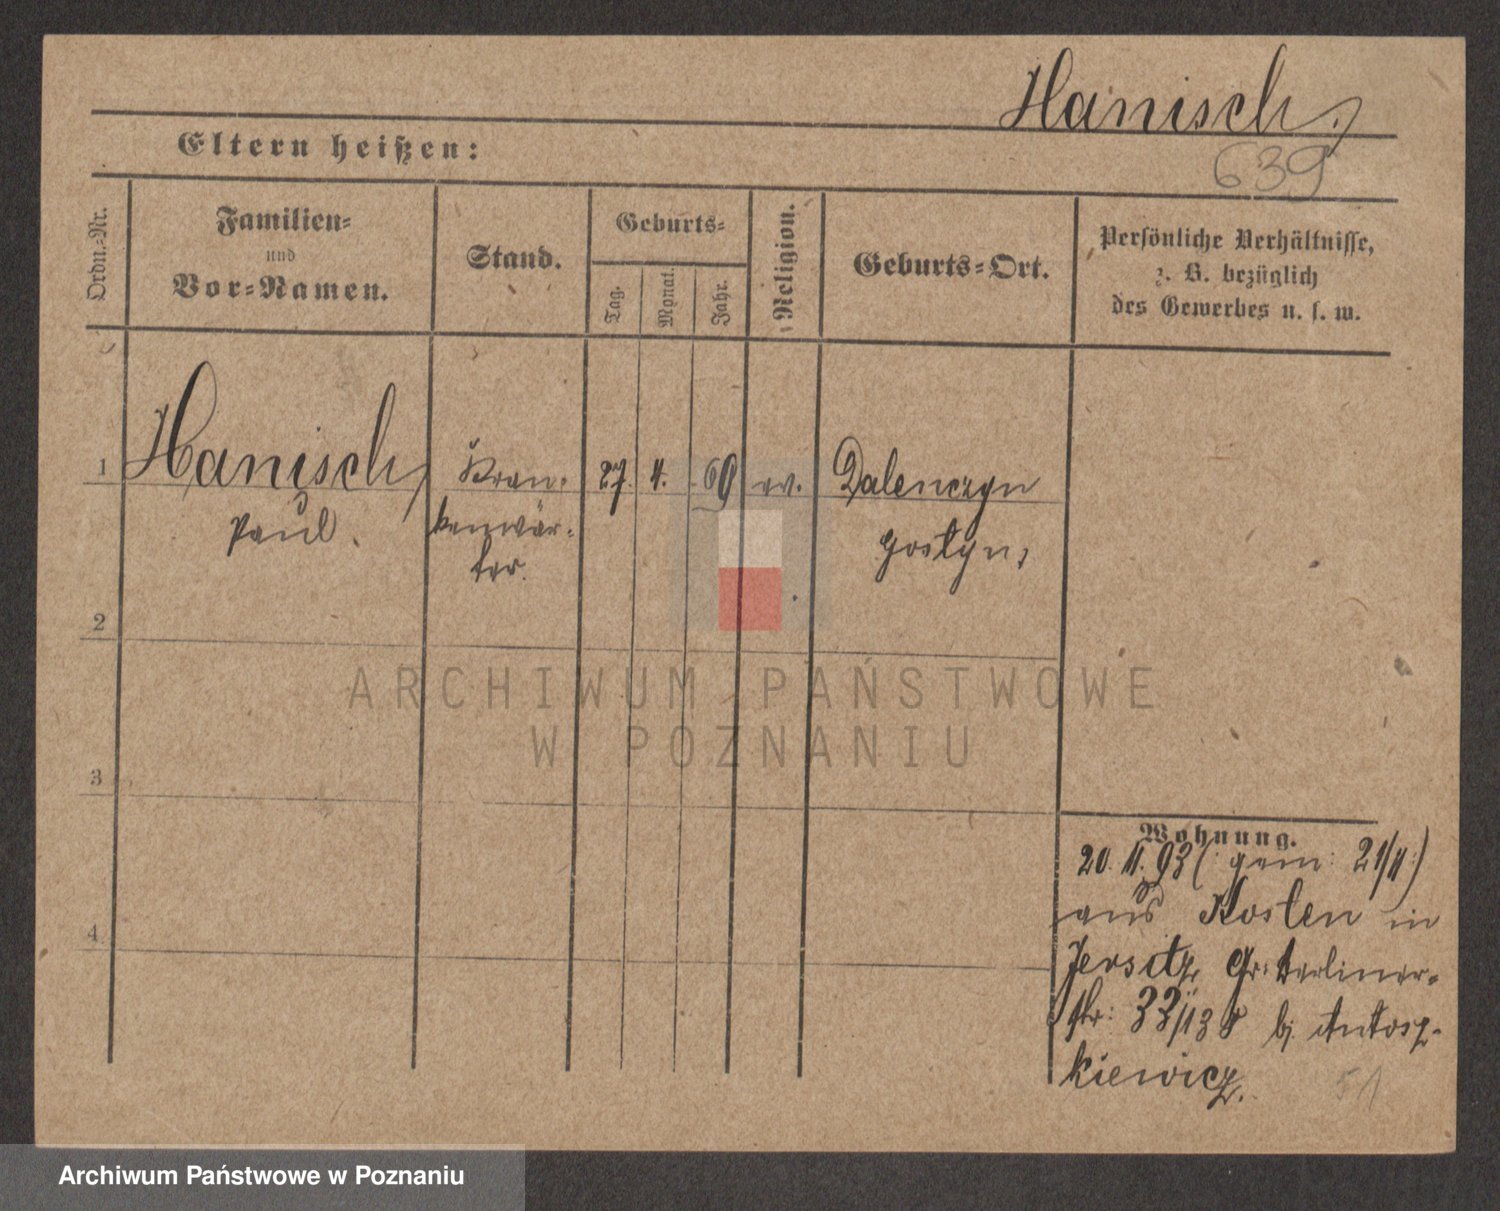 Hanisch,
639
Eltern heißen:
Ordn.-Nr.
Familien-
und
Vor-Namen.
Stand.
Geburts-
Tag.
Monat.
Jahr.
Religion.
Geburts-Ort.
Persönliche Verhältnisse,
z. B. bezüglich
des Gewerbes u. s. w.
1 Hanisch, Kran- 27. 4. 69 ev. Dalenczyn
Paul. kenwär- Gostyn,
ter.
2
ARCHIWUM PAŃSTWOWE
W POZNANIU
3
Wohnung.
20. 11. 93 (: gem: 21/11:)
aus Kosten in
Jersitz Gr: Berliner-
str: 33/ b. Antosz-
kiewicz.
51
4
Archiwum Państwowe w Poznaniu